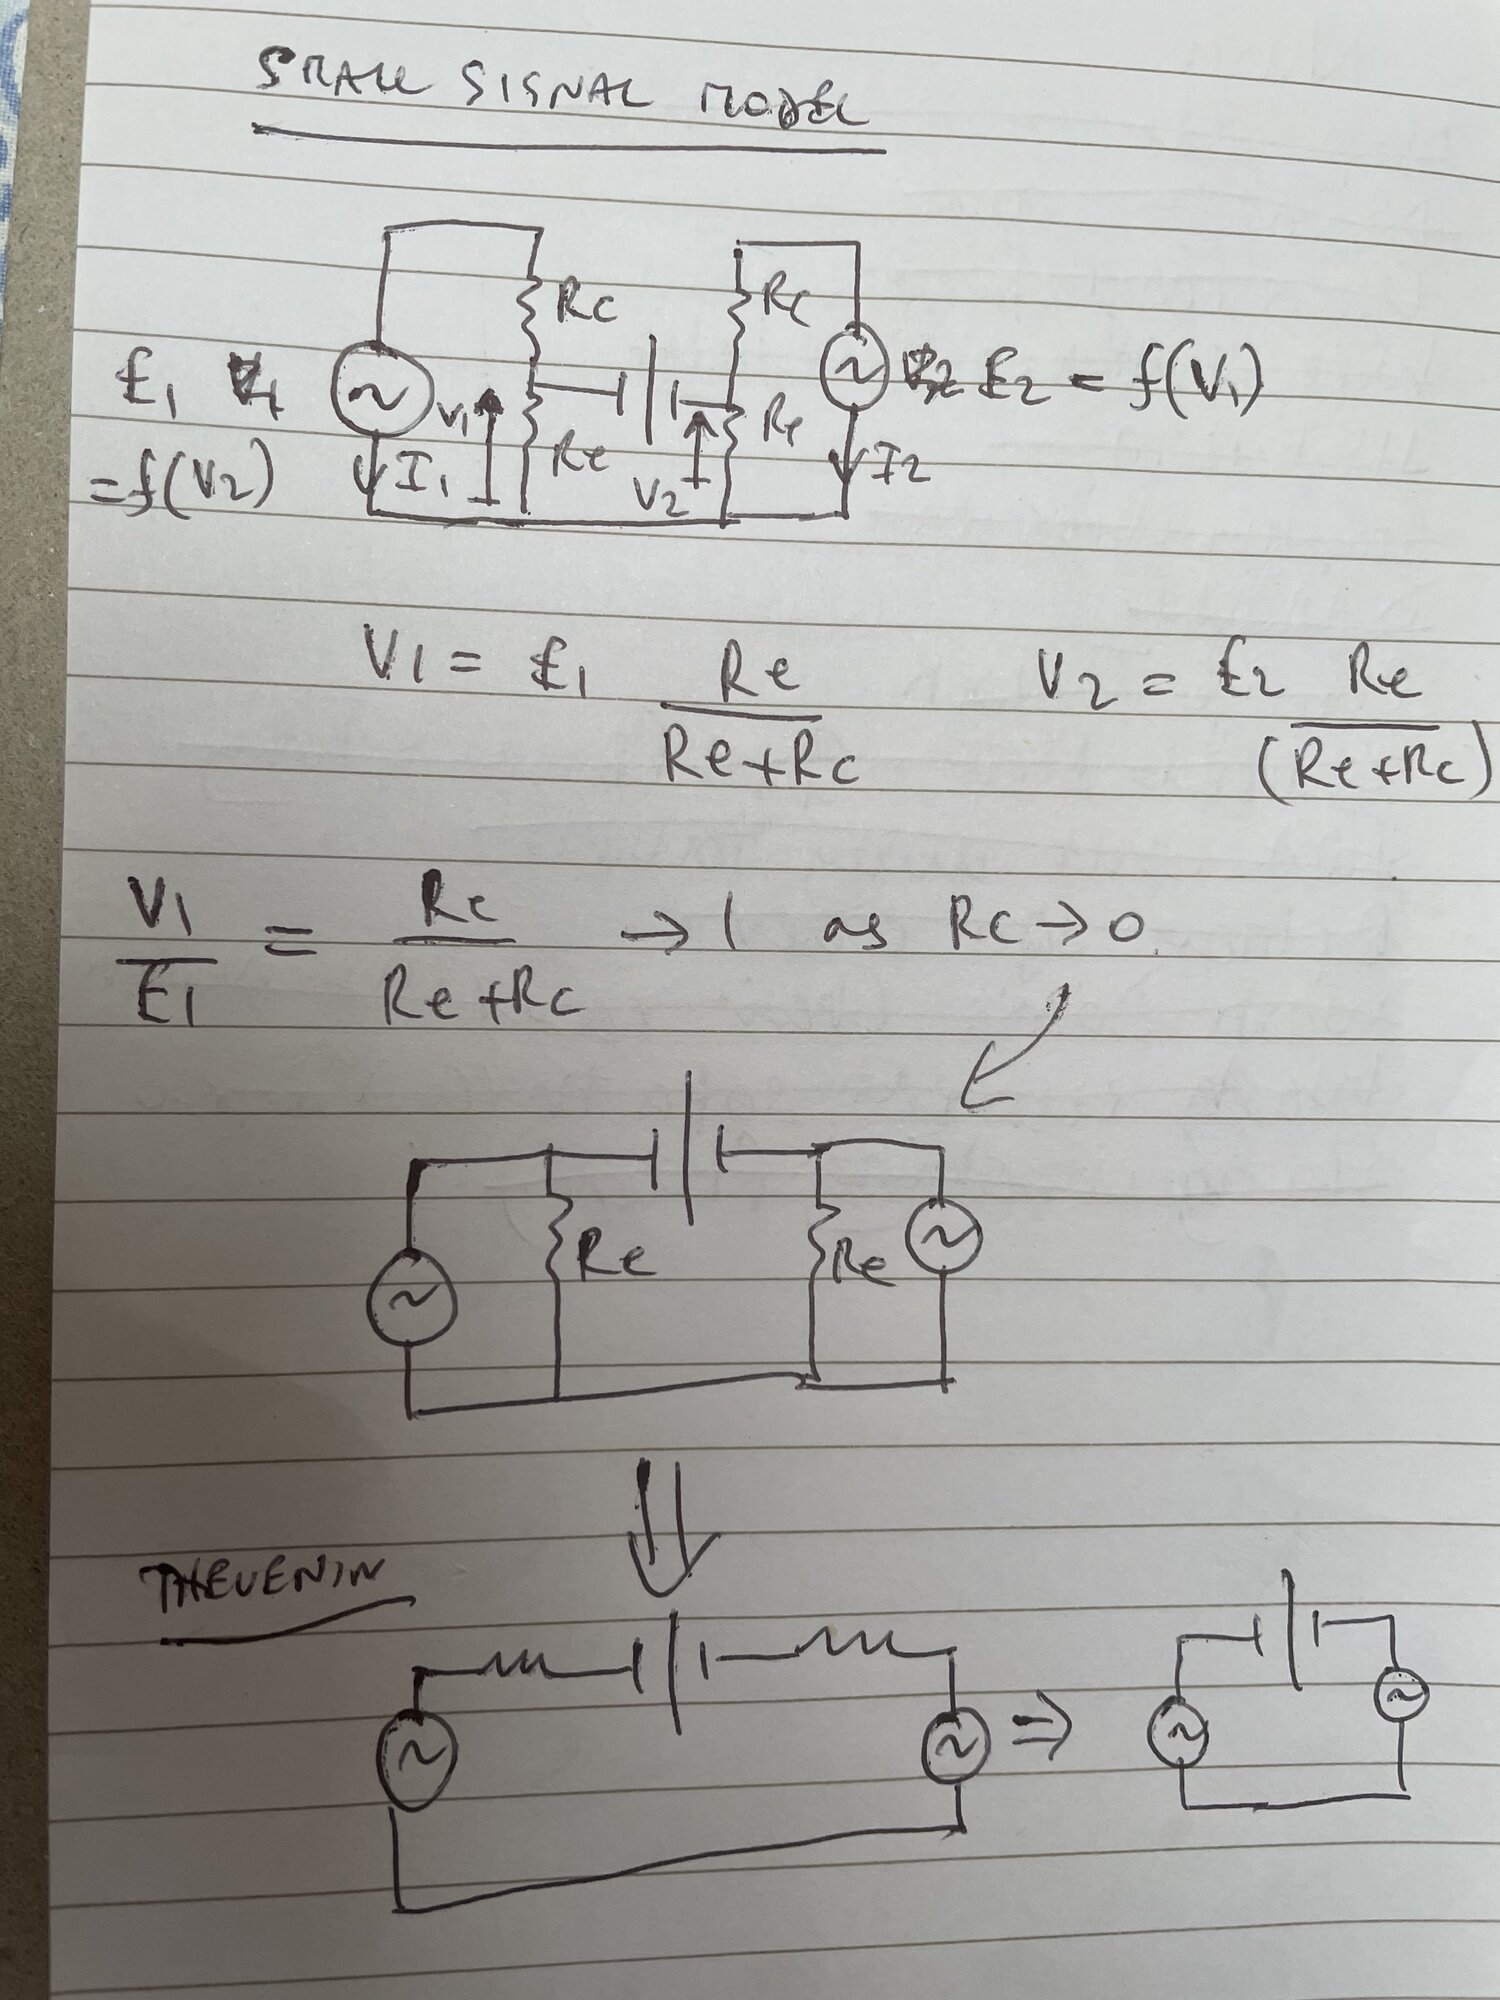 SMALL SIGNAL MODEL
Rc Rc
E1 V1 E2 = f(V1)
= f(V2) I1 Re V2 Re I2
V1 = E1 Re / Re+Rc V2 = E2 Re / (Re+Rc)
V1 / E1 = Re / Re+Rc → 1 as Rc → 0
Re Re
THEVENIN
⇒